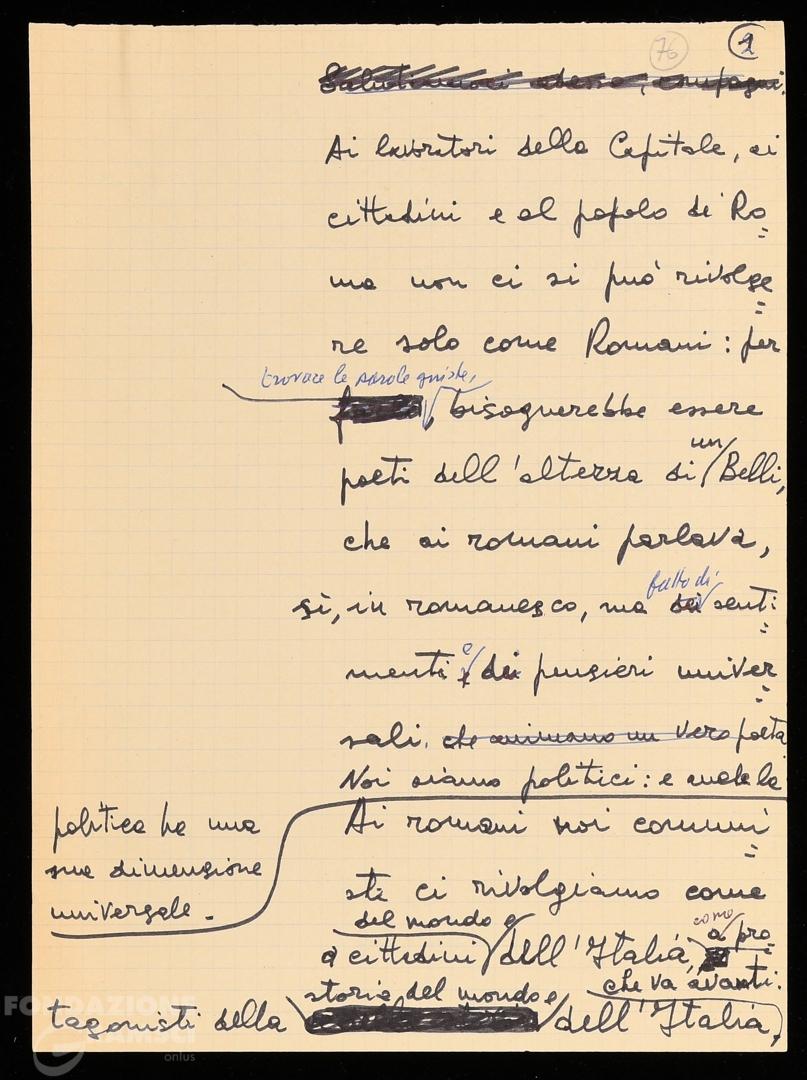 76
1
Salutiamoci adesso, compagni.
Ai lavoratori della Capitale, ai
cittadini e al popolo di Ro
ma non ci si può rivolge
re solo come Romani: per
trovare le parole giuste,
bisognerebbe essere
un
poeti dell'altezza di Belli,
che ai romani parlava,
fatto di
sì, in romanesco, ma dei senti
e
menti, dei pensieri univer
sali. che animano un vero poeta
Noi siamo politici: e anche la
politica ha una
sua dimensione
universale.
Ai romani noi comuni
sti ci rivolgiamo come
del mondo e
come
a cittadini dell'Italia, a pro
che va avanti.
storia del mondo e
tagonisti della dell'Italia,
FONDAZIONE
GRAMSCI
onlus